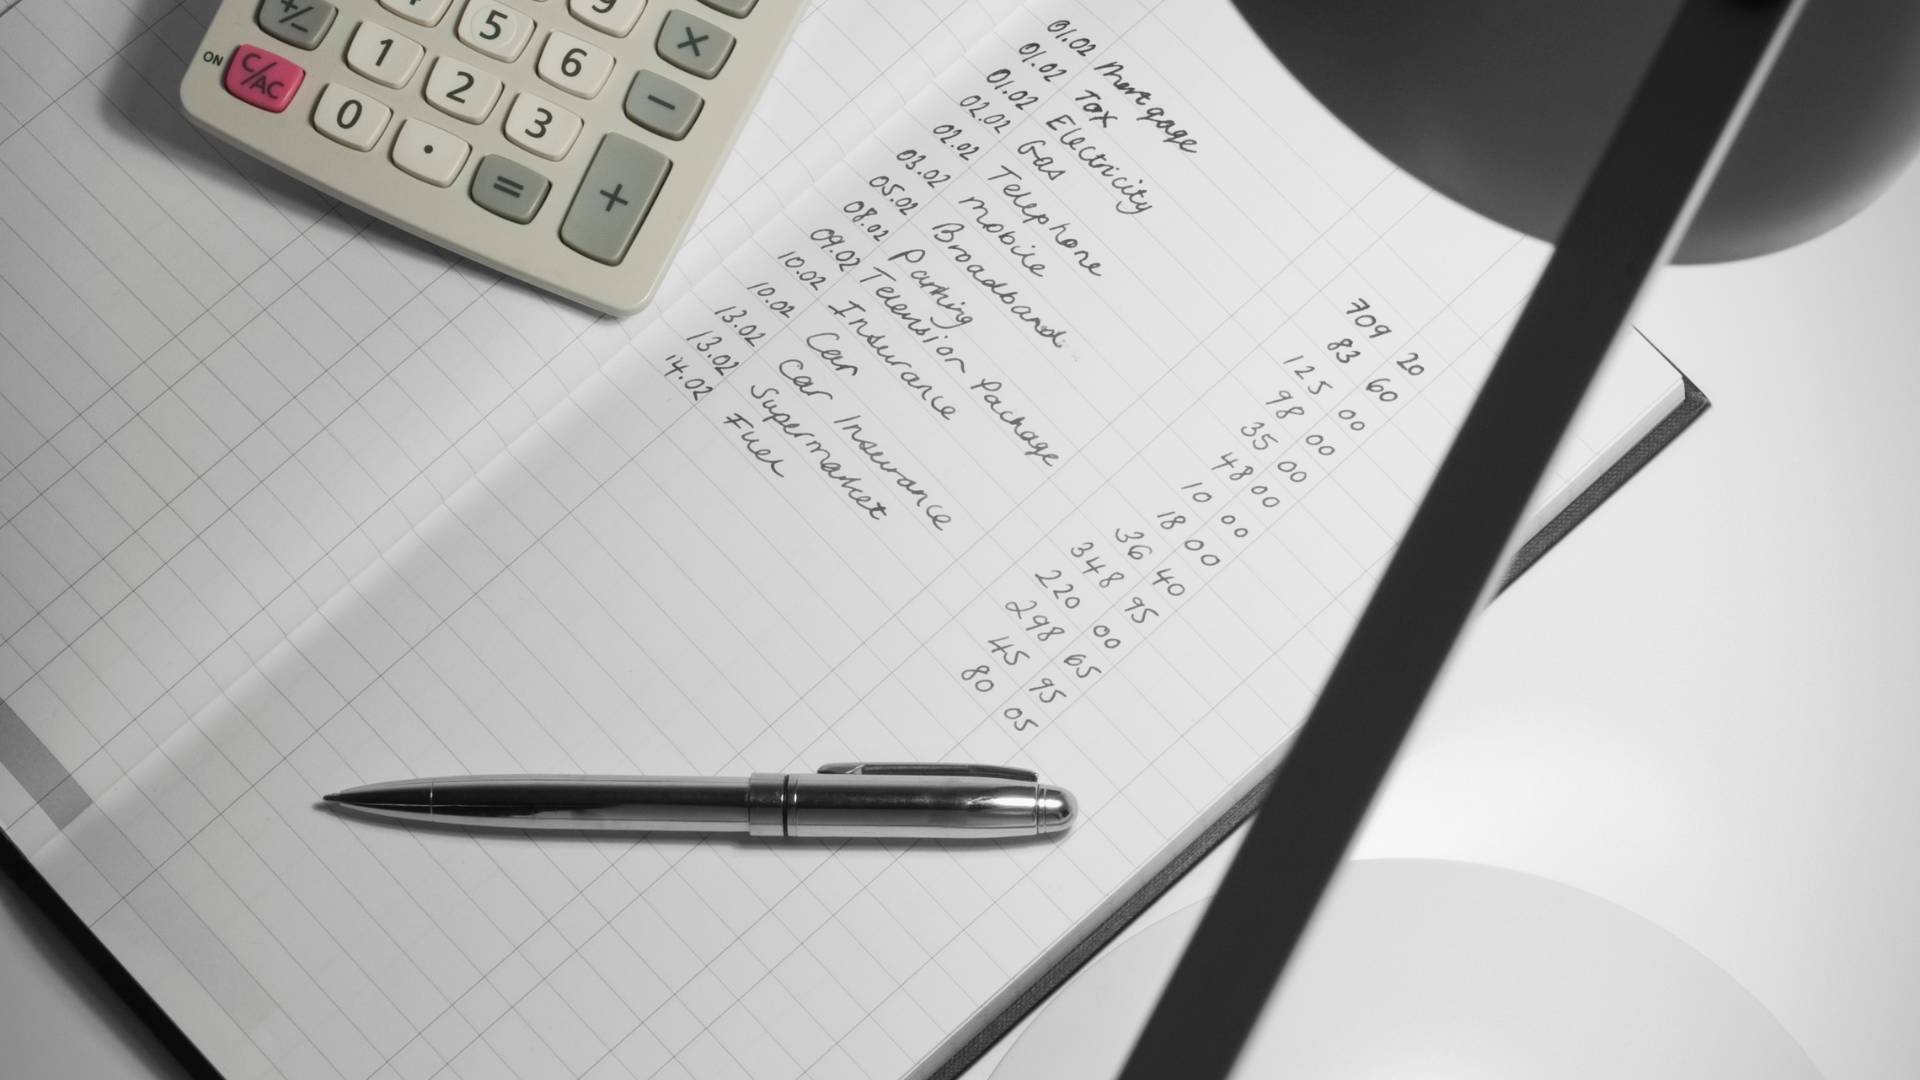 +/− 5 9
1 6 ×
ON C/AC 2 −
0 3
· = +
01.02 Mortgage 709 20
01.02 Tax 83 60
01.02 Electricity 125 00
02.02 Gas 98 00
02.02 Telephone 35 00
03.02 mobile 48 00
05.02 Broadband. 10 00
08.02 Parking 18 00
09.02 Television Package 36 40
10.02 Insurance 348 95
10.02 Car 220 00
13.02 Car Insurance 298 65
13.02 Supermarket 45 95
14.02 Fuel 80 05